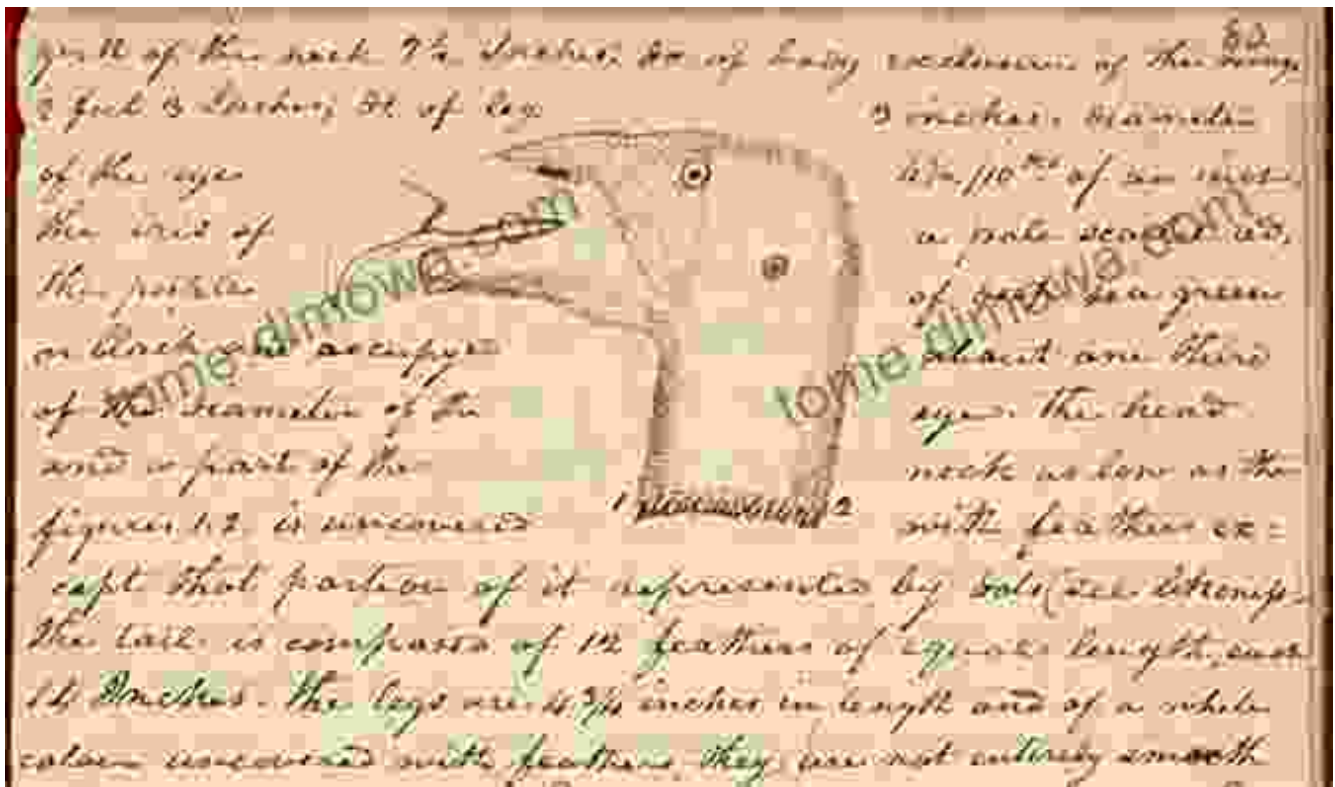 of the neck 7½ Inches; do. of body exclusive of the
2 feet 3 Inches; do. of leg 3 inches. diameter
of the eye of an inch.
the iris of a pale scarlet red,
the puple of sea green
or black and occupyes about one third
of the diameter of the eye. the head
and a part of the neck as low as the
figures 1.2. is uncovered with feathers ex=
cept that portion of it represented by dots (see
1 2
the tail is composed of 12 feathers of equal length, each
14 Inches. the legs are 4¾ inches in length and of a white
colour uncovered with feathers, they are not entirely smooth
tome.dimowa.com
tome.dimowa.com